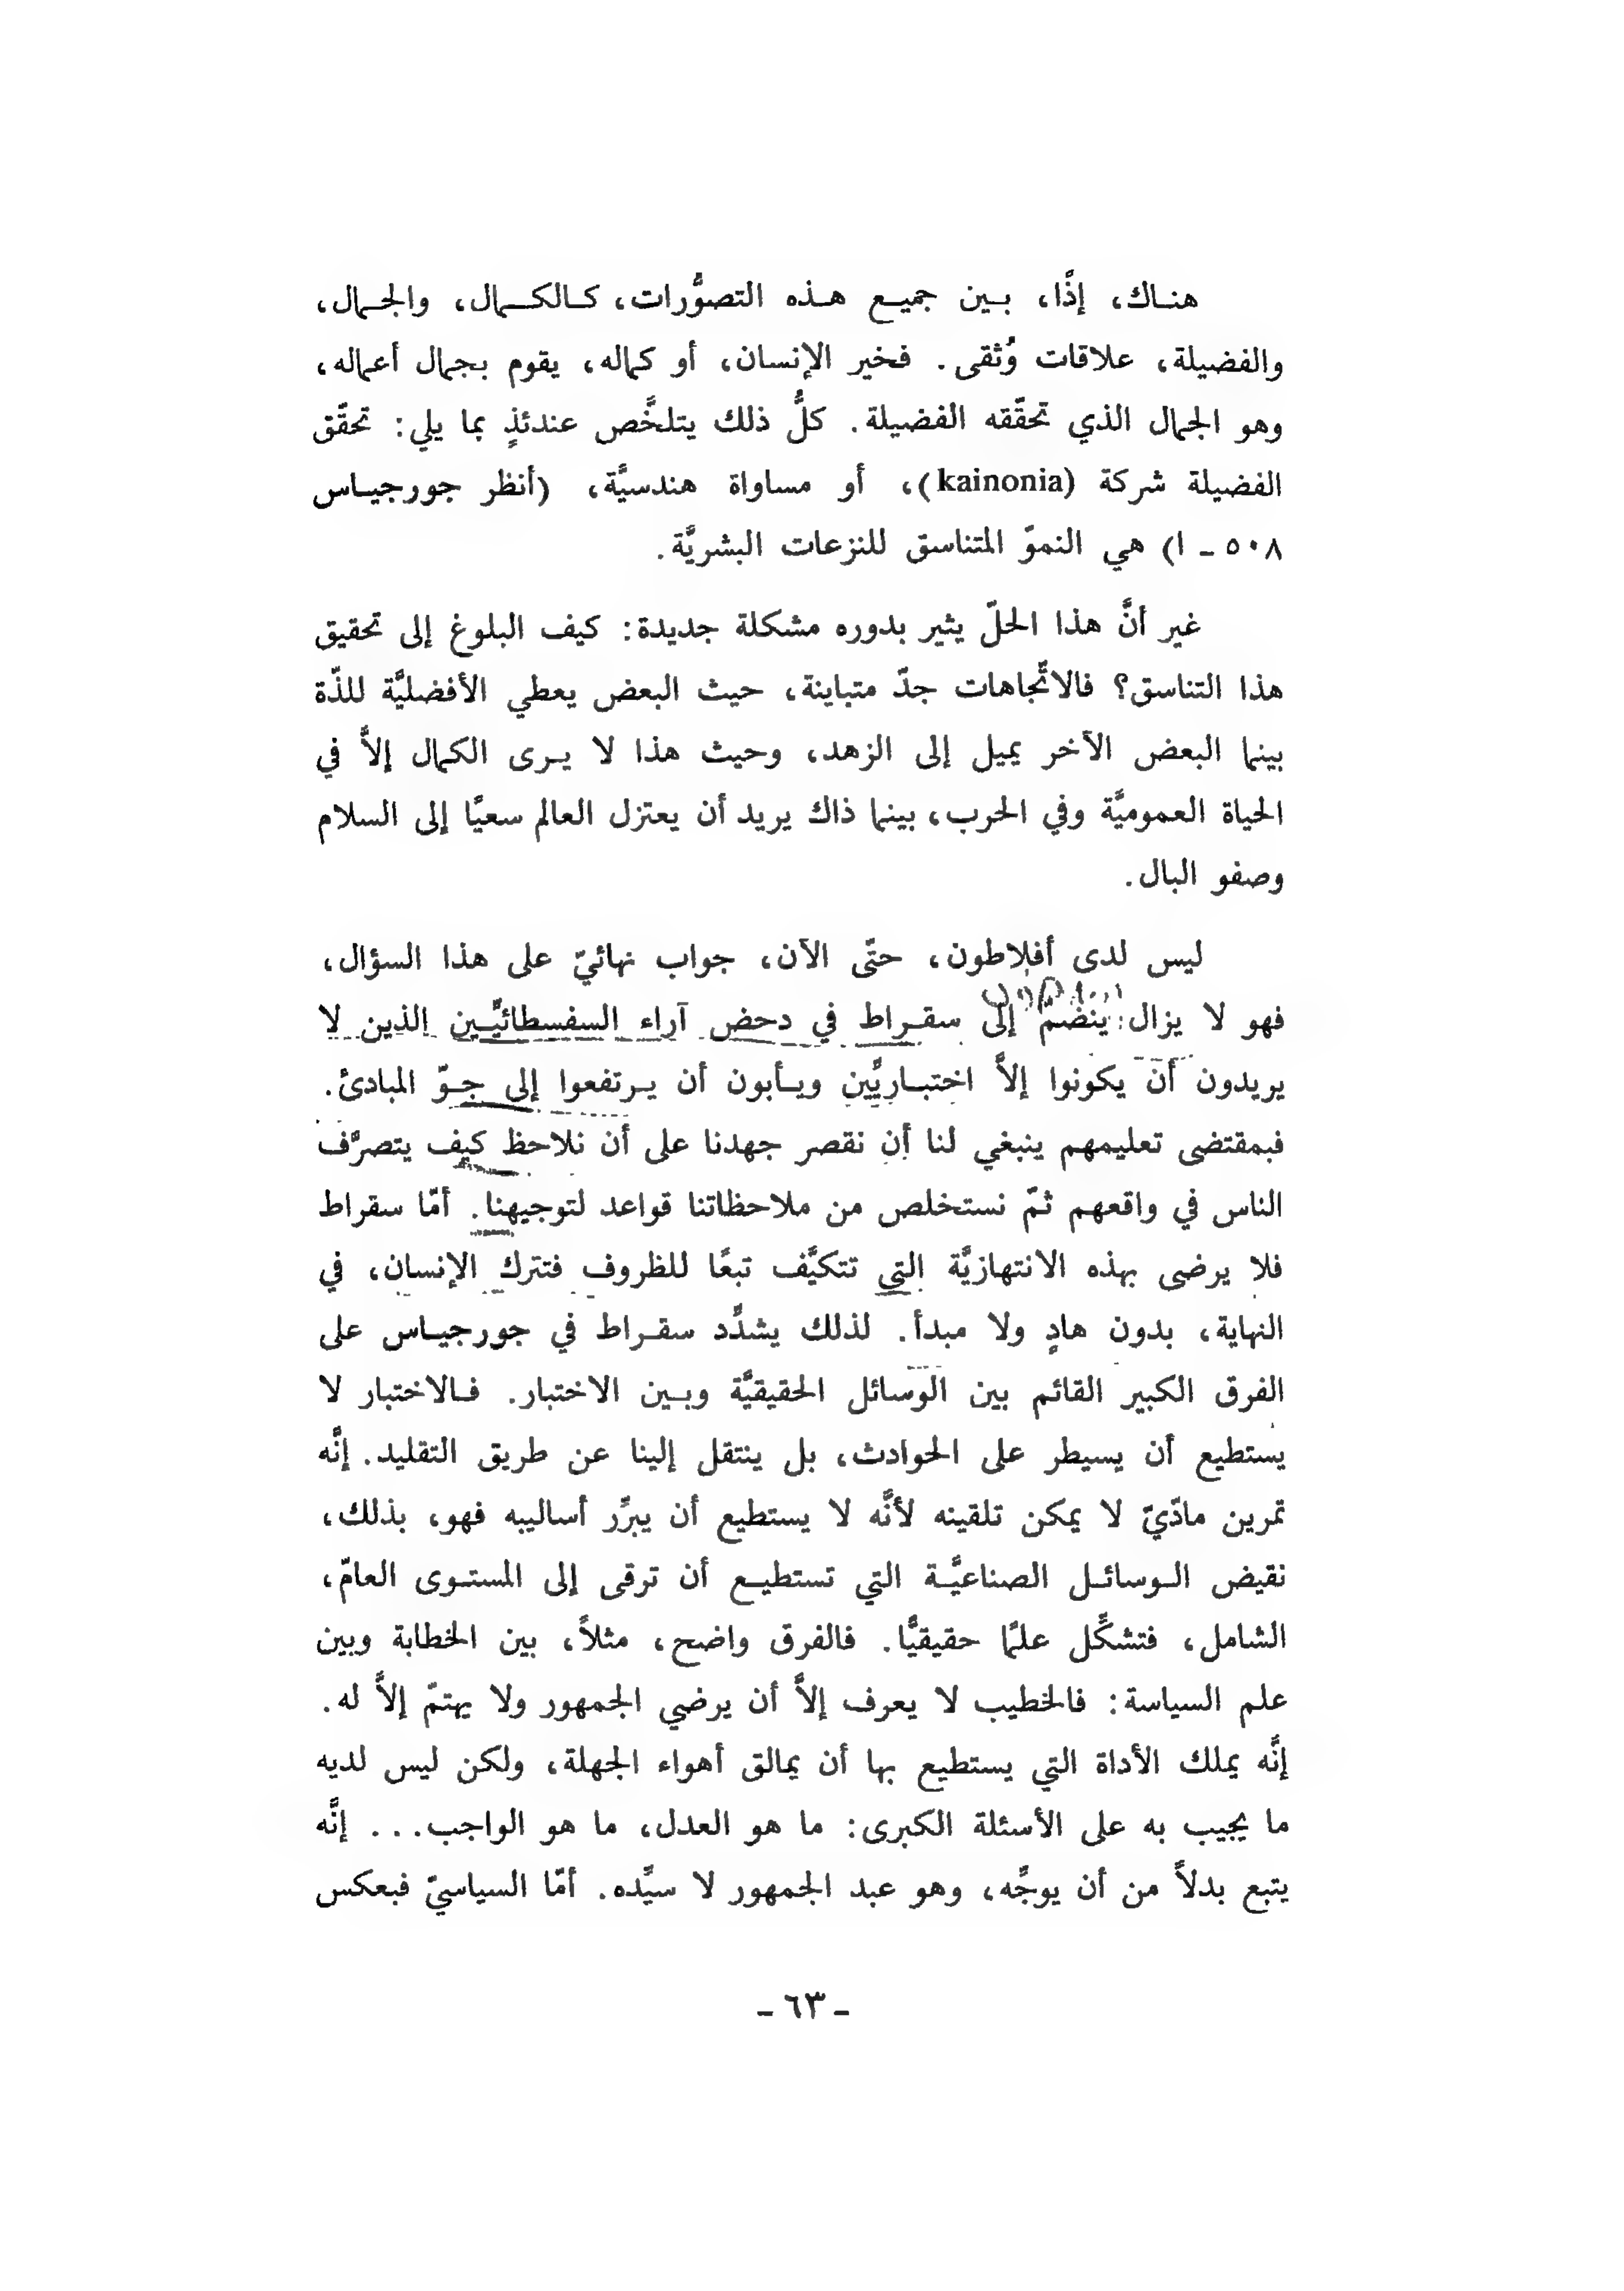 هناك، إذًا، بين جميع هذه التصوُّرات، كالكمال، والجمال،
والفضيلة، علاقات وُثقى. فخير الإنسان، أو كماله، يقوم بجمال أعماله،
وهو الجمال الذي تحقّقه الفضيلة. كلُّ ذلك يتلخَّص عندئذٍ بما يلي: تحقّق
الفضيلة شركة (kainonia)، أو مساواة هندسيَّة، (أنظر جورجياس
٥٠٨ - ا) هي النموّ المتناسق للنزعات البشريَّة.
غير أنَّ هذا الحلّ يثير بدوره مشكلة جديدة: كيف البلوغ إلى تحقيق
هذا التناسق؟ فالاتّجاهات جدّ متباينة، حيث البعض يعطي الأفضليَّة للذّة
بينما البعض الآخر يميل إلى الزهد، وحيث هذا لا يرى الكمال إلاَّ في
الحياة العموميَّة وفي الحرب، بينما ذاك يريد أن يعتزل العالم سعيًا إلى السلام
وصفو البال.
ليس لدى أفلاطون، حتّى الآن، جواب نهائيّ على هذا السؤال،
فهو لا يزال ينضمّ إلى سقراط في دحض آراء السفسطائيّين الذين لا
يريدون أن يكونوا إلاَّ اختباريِّين ويأبون أن يرتفعوا إلى جوّ المبادئ.
فبمقتضى تعليمهم ينبغي لنا أن نقصر جهدنا على أن نلاحظ كيف يتصرَّف
الناس في واقعهم ثمّ نستخلص من ملاحظاتنا قواعد لتوجيهنا. أمّا سقراط
فلا يرضى بهذه الانتهازيَّة التي تتكيَّف تبعًا للظروف فتترك الإنسان، في
النهاية، بدون هادٍ ولا مبدأ. لذلك يشدَّد سقراط في جورجياس على
الفرق الكبير القائم بين الوسائل الحقيقيَّة وبين الاختبار. فالاختبار لا
يستطيع أن يسيطر على الحوادث، بل ينتقل إلينا عن طريق التقليد. إنَّه
تمرين مادّيّ لا يمكن تلقينه لأنَّه لا يستطيع أن يبرِّر أساليبه فهو، بذلك،
نقيض الوسائل الصناعيَّة التي تستطيع أن ترقى إلى المستوى العامّ،
الشامل، فتشكِّل علمًا حقيقيًّا. فالفرق واضح، مثلاً، بين الخطابة وبين
علم السياسة: فالخطيب لا يعرف إلاَّ أن يرضي الجمهور ولا يهتمّ إلاَّ له.
إنَّه يملك الأداة التي يستطيع بها أن يمالق أهواء الجهلة، ولكن ليس لديه
ما يجيب به على الأسئلة الكبرى: ما هو العدل، ما هو الواجب... إنَّه
يتبع بدلاً من أن يوجِّه، وهو عبد الجمهور لا سيِّده. أمّا السياسيّ فبعكس
- ٦٣ -